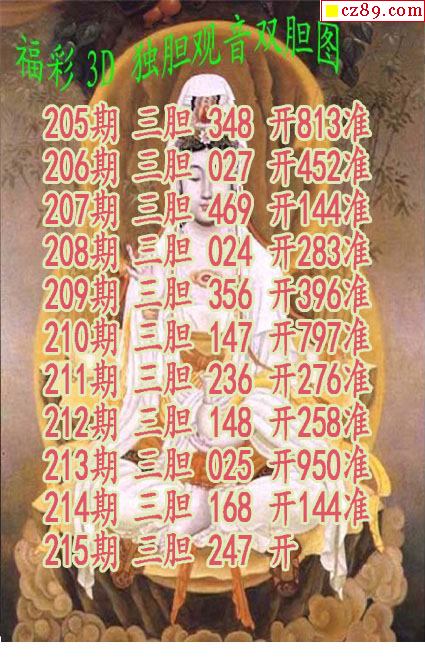 cz89.com
福彩 3D 独胆观音双胆图
205期 三胆 348 开813准
206期 三胆 027 开452准
207期 三胆 469 开144准
208期 三胆 024 开283准
209期 三胆 356 开396准
210期 三胆 147 开797准
211期 三胆 236 开276准
212期 三胆 148 开258准
213期 三胆 025 开950准
214期 三胆 168 开144准
215期 三胆 247 开